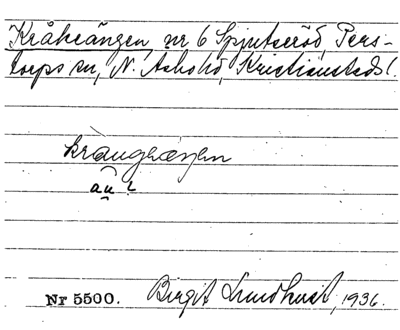 Kråkeängen, nr 6 Spjutseröd, Pers-
torps sn, N. Åsbo hd, Kristianstads l.
kråugeæŋen
au ?
Nr 5500. Birgit Lundkvist, 1936.